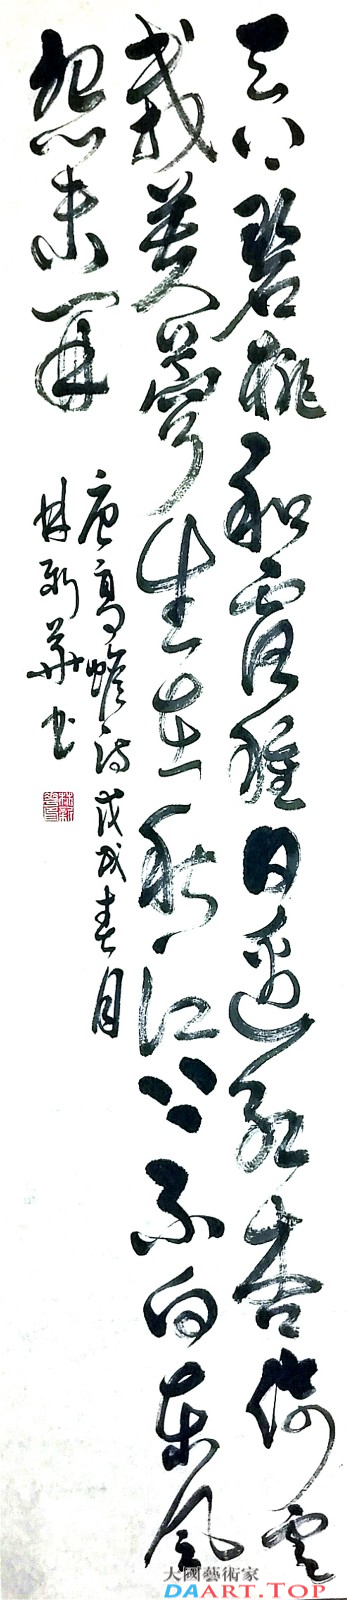 天上碧桃和露種日邊紅杏倚雲
栽芙蓉生在秋江上不向東風
怨未開
唐高蟾詩戊戌春月
林新華書
大國藝術家
DAART.TOP